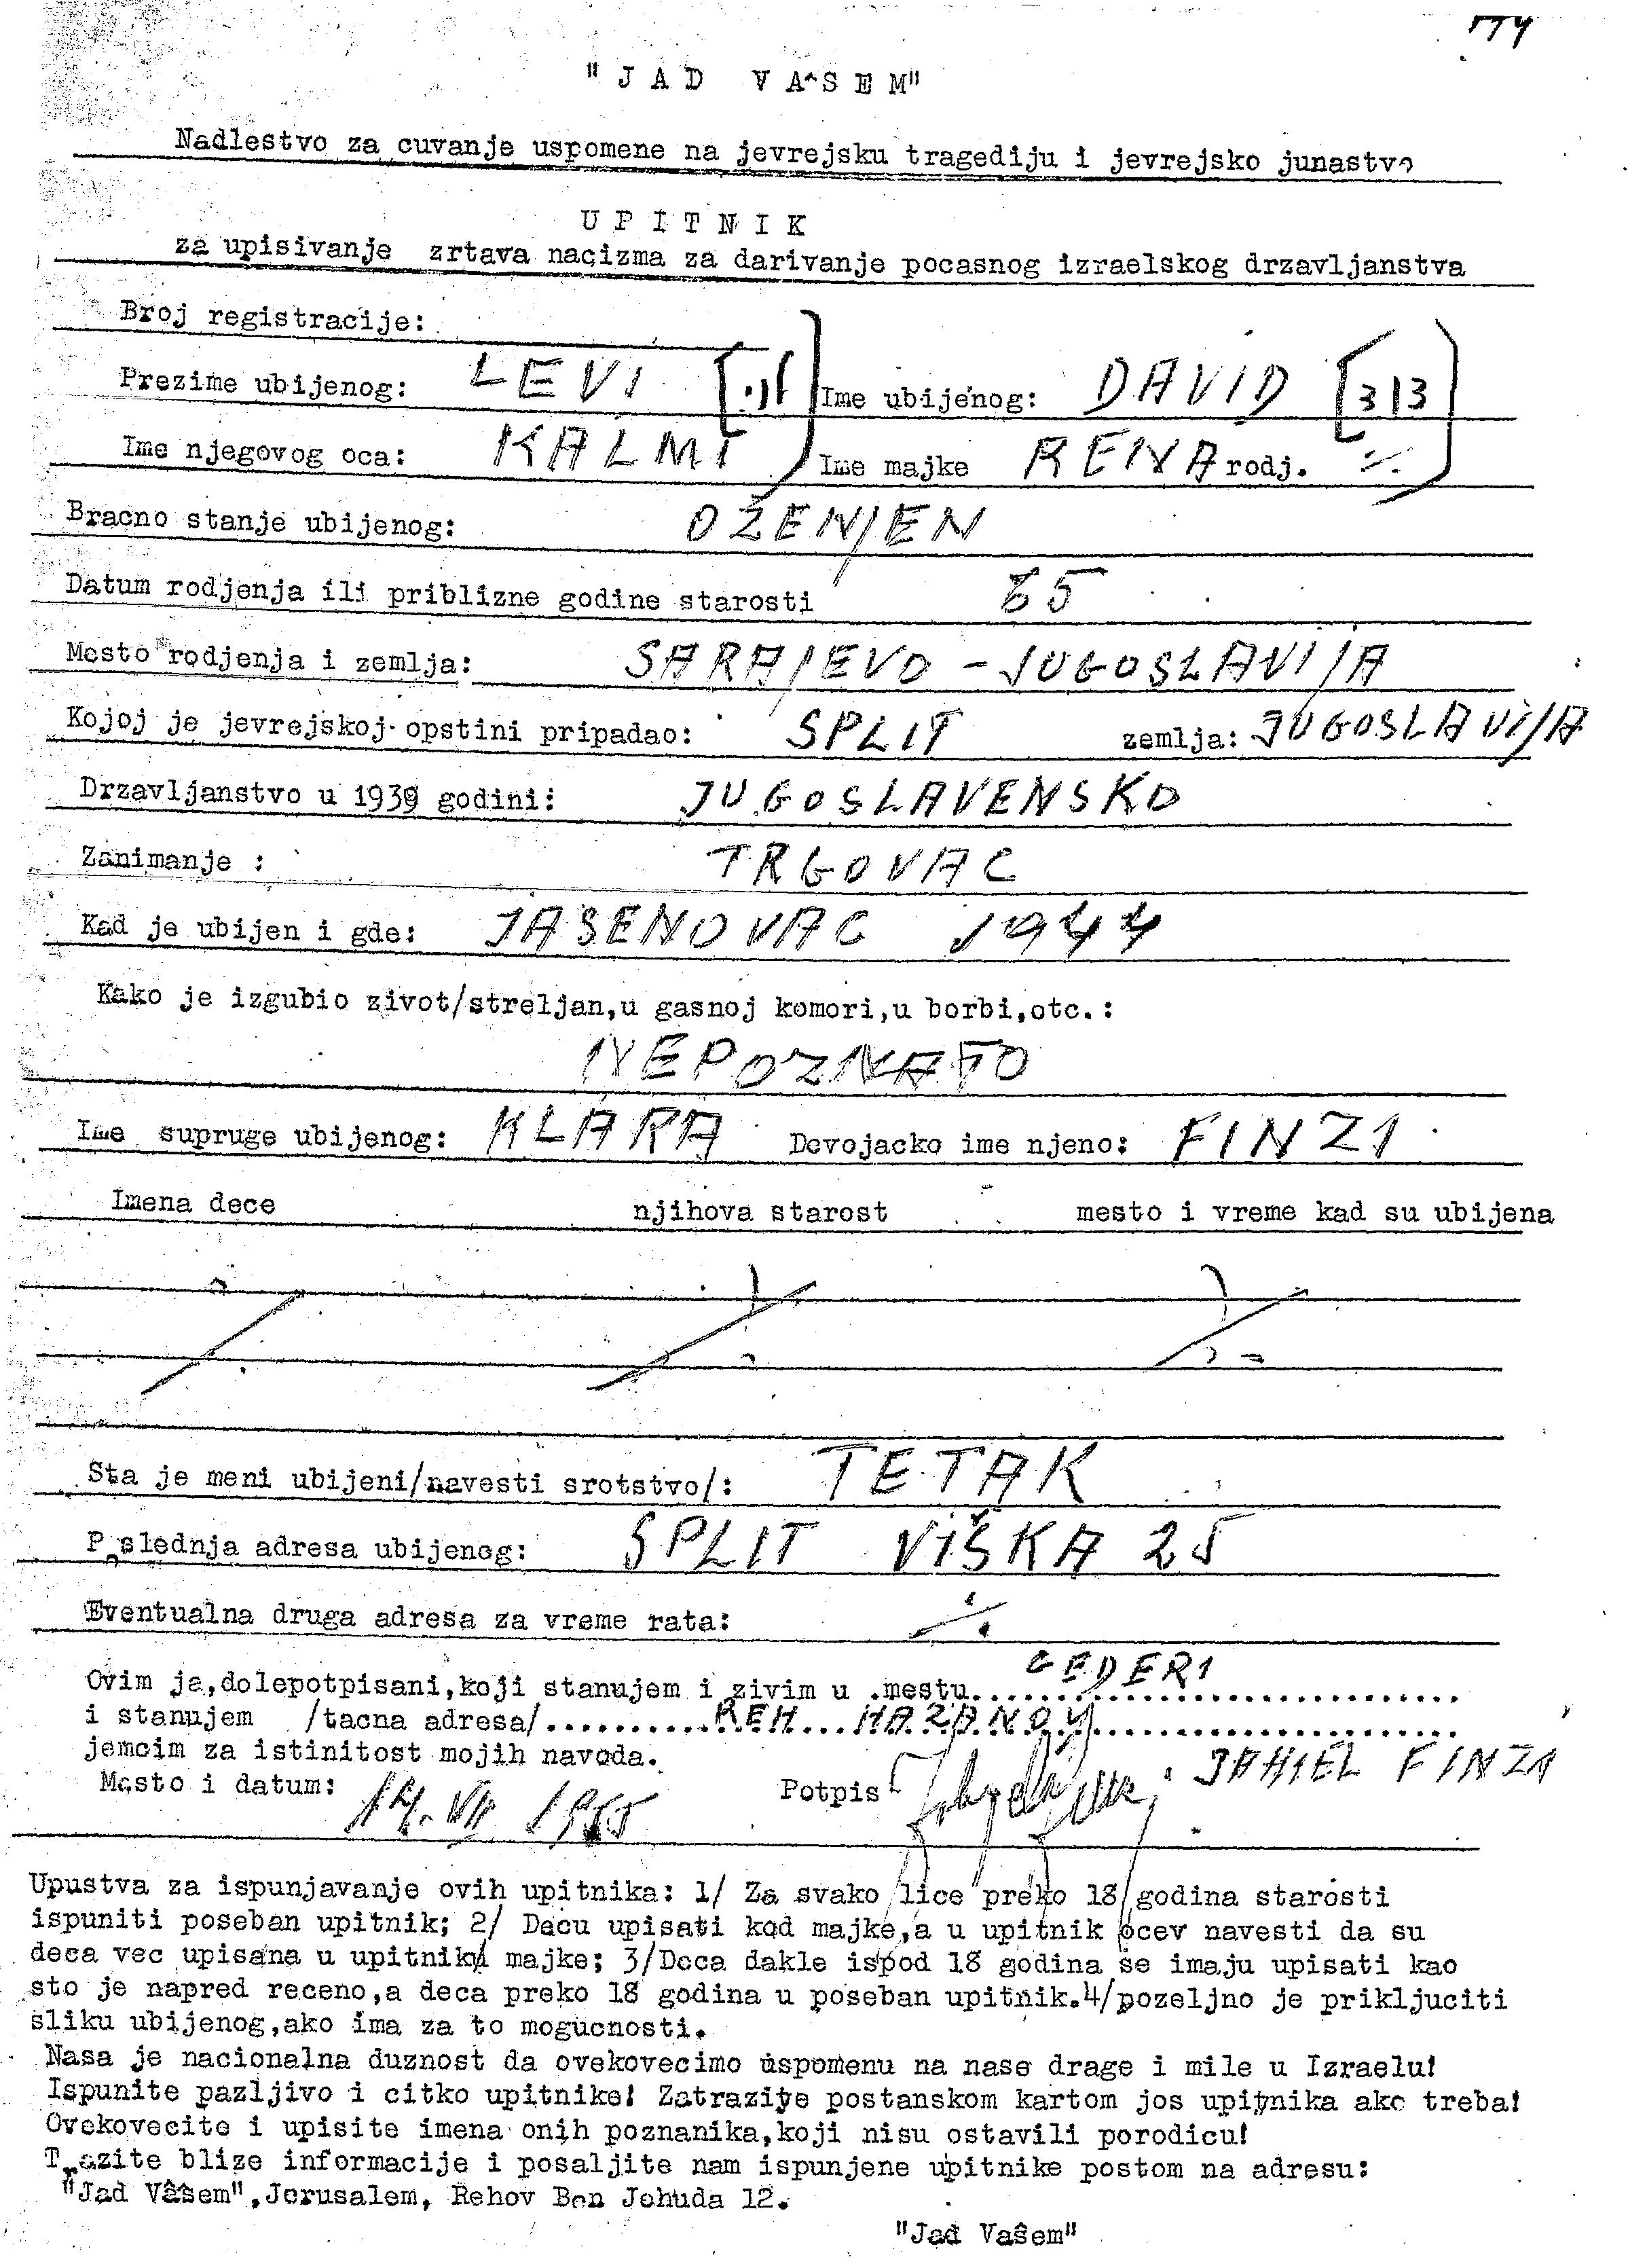 "JAD VA^SEM"
Nadlestvo za cuvanje uspomene na jevrejsku tragediju i jevrejsko junastvo
UPITNIK
za upisivanje zrtava nacizma za darivanje pocasnog izraelskog drzavljanstva
Broj registracije:
Prezime ubijenog: LEVI Ime ubijenog: DAVID
Ime njegovog oca: KALMI Ime majke RENA rodj.
Bracno stanje ubijenog: OŽENJEN
Datum rodjenja ili priblizne godine starosti 65
Mesto rodjenja i zemlja: SARAJEVO - JUGOSLAVIJA
Kojoj je jevrejskoj opstini pripadao: SPLIT zemlja: JUGOSLAVIJA
Drzavljanstvo u 1939 godini: JUGOSLAVENSKO
Zanimanje : TRGOVAC
Kad je ubijen i gde: JASENOVAC 1944
Kako je izgubio zivot/streljan,u gasnoj komori,u borbi,etc.:
NEPOZNATO
Ime supruge ubijenog: KLARA Devojacko ime njeno: FINZI
Imena dece njihova starost mesto i vreme kad su ubijena
Sta je meni ubijeni/navesti srotstvo/: TETAK
Poslednja adresa ubijenog: SPLIT VIŠKA 25
Eventualna druga adresa za vreme rata:
Ovim ja,dolepotpisani,koji stanujem i zivim u mestu GEDERI
i stanujem /tacna adresa/ REH HAZANOV
jemcim za istinitost mojih navoda.
Mesto i datum: 14. VII 1955 Potpis JAHIEL FINZI
Upustva za ispunjavanje ovih upitnika: 1/ Za svako lice preko 18 godina starosti
ispuniti poseban upitnik; 2/ Decu upisati kod majke,a u upitnik ocev navesti da su
deca vec upisana u upitniku majke; 3/Deca dakle ispod 18 godina se imaju upisati kao
sto je napred receno,a deca preko 18 godina u poseban upitnik.4/pozeljno je prikljuciti
sliku ubijenog,ako ima za to mogucnosti.
Nasa je nacionalna duznost da ovekovecimo uspomenu na nase drage i mile u Izraelu!
Ispunite pazljivo i citko upitnike! Zatrazite postanskom kartom jos upitnika ako treba!
Ovekovecite i upisite imena onih poznanika,koji nisu ostavili porodicu!
Trazite blize informacije i posaljite nam ispunjene upitnike postom na adresu:
"Jad Vâŝem",Jerusalem, Rehov Ben Jehuda 12.
"Jad Vaŝem"